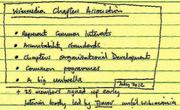 Wikimedia Chapters Association
• Represent Common Interests
• Accountability Standards
• Chapters Organisational Development
• Common programmes
• A big umbrella
July 2012
• 25 members signed up early
Interim body led by